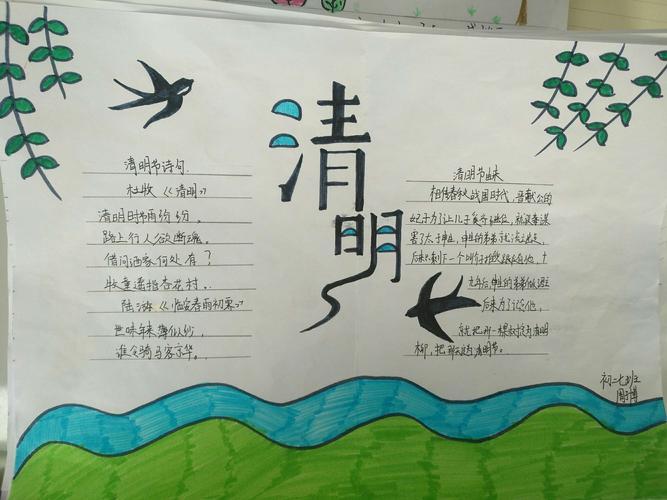 清明
清明节诗句
杜牧《清明》
清明时节雨纷纷。
路上行人欲断魂。
借问酒家何处有？
牧童遥指杏花村。
陆游《临安春雨初霁》
世味年来薄似纱，
谁令骑马客京华。
清明节由来
相传春秋战国时代，晋献公的
妃子为了让儿子奚齐继位，就设毒谋
害了太子申生，申生的弟弟
十九年后，申生的弟弟做
后来为了
就把那一棵
柳，把
初二七班
周子博